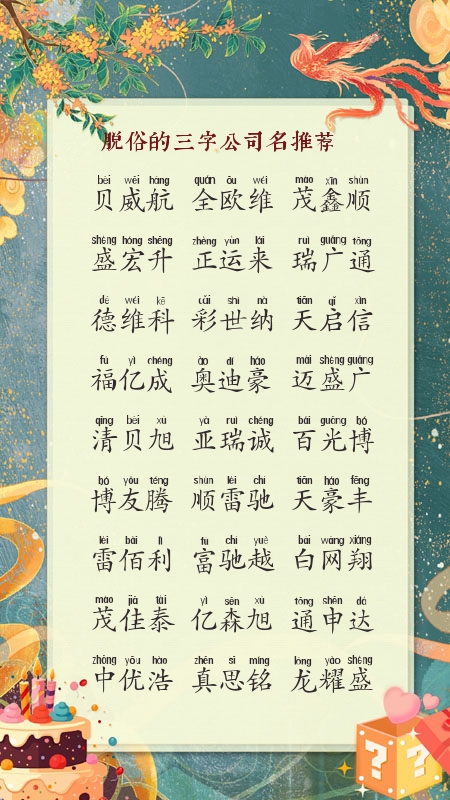 脱俗的三字公司名推荐
bèi wēi háng quán ōu wéi mào xīn shùn
贝威航 全欧维 茂鑫顺
shèng hóng shēng zhèng yùn lái ruì guǎng tōng
盛宏升 正运来 瑞广通
dé wéi kē cǎi shì nà tiān qǐ xìn
德维科 彩世纳 天启信
fú yì chéng ào dí háo mài shèng guǎng
福亿成 奥迪豪 迈盛广
qīng bèi xù yà ruì chéng bǎi guāng bó
清贝旭 亚瑞诚 百光博
bó yǒu téng shùn léi chí tiān háo fēng
博友腾 顺雷驰 天豪丰
léi bǎi lì fù chí yuè bái wǎng xiáng
雷佰利 富驰越 白网翔
mào jiā tài yì sēn xù tōng shēn dá
茂佳泰 亿森旭 通申达
zhōng yōu hào zhēn sī míng lóng yào shèng
中优浩 真思铭 龙耀盛
? ?